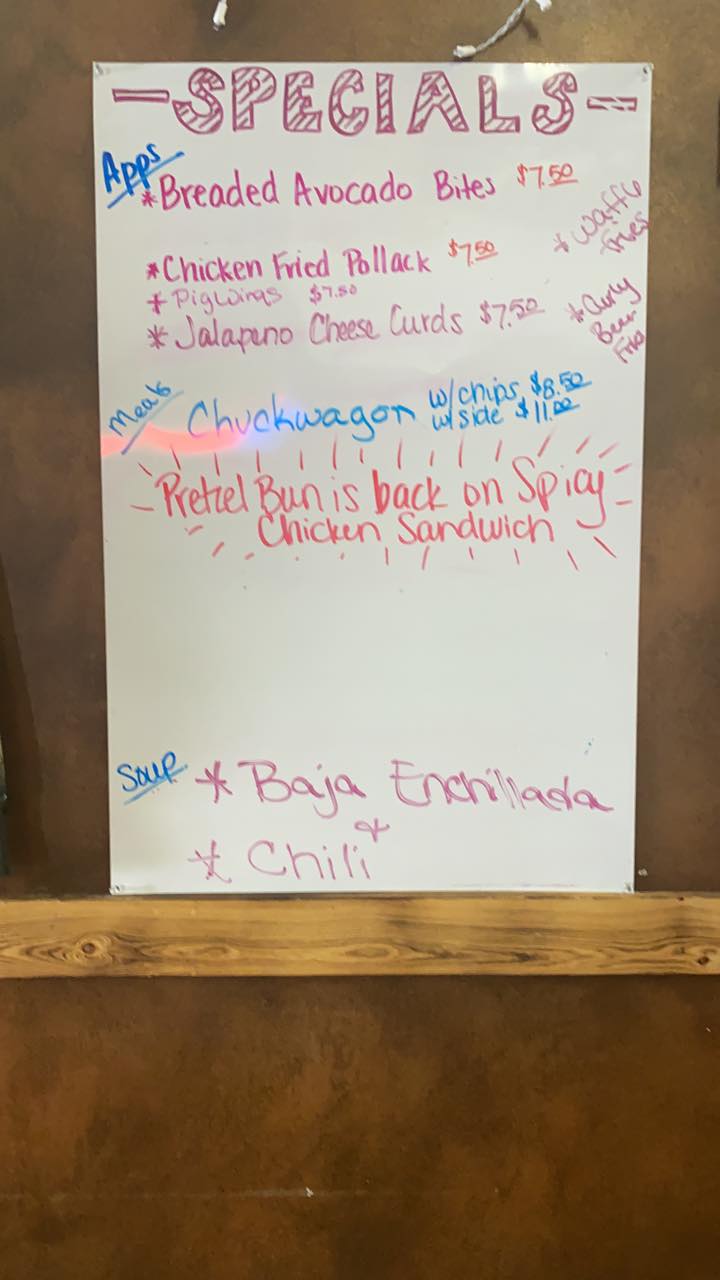 -SPECIALS-
Apps
*Breaded Avocado Bites $7.50
* Waffle
Fries
*Chicken Fried Pollack $7.50
* Pig Wings $7.50
* Jalapeno Cheese Curds $7.50
* Curly
Beer
Fries
Meals
Chuckwagon w/chips $8.50
w/side $11.00
Pretzel Bun is back on Spicy
Chicken Sandwich
Soup
* Baja Enchillada
&
* Chili